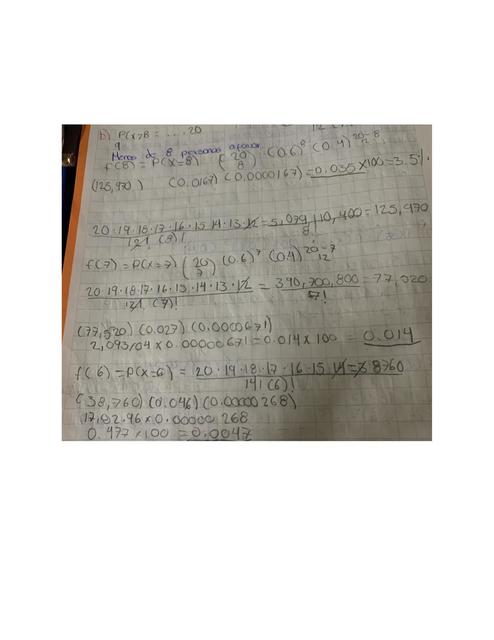 b) P(x>8 = .... 20
9
Menos de 8 personas apoyan
f(8) = P(x=8) (20 8) (0.6)⁸ (0.4)²⁰⁻⁸ 12
(125,970) (0.0167) (0.0000167) = 0.035 x 100 = 3.5%
20·19·18·17·16·15·14·13·12 = 5,079,110,400 = 125,970
12! (8)! 8!
f(7) = P(x=7) (20 7) (0.6)⁷ (0.4)²⁰⁻⁷ 12
20·19·18·17·16·15·14·13·12 = 390,700,800 = 77,520
12! (7)! 7!
(77,520) (0.027) (0.00000671)
2,093.04 x 0.00000671 = 0.014 x 100 = 0.014
f(6) = P(x=6) = 20·19·18·17·16·15·14 = 38760
14! (6)!
(38,760) (0.046) (0.00000268)
1782.96 x 0.00000268
0.477 x 100 = 0.0047